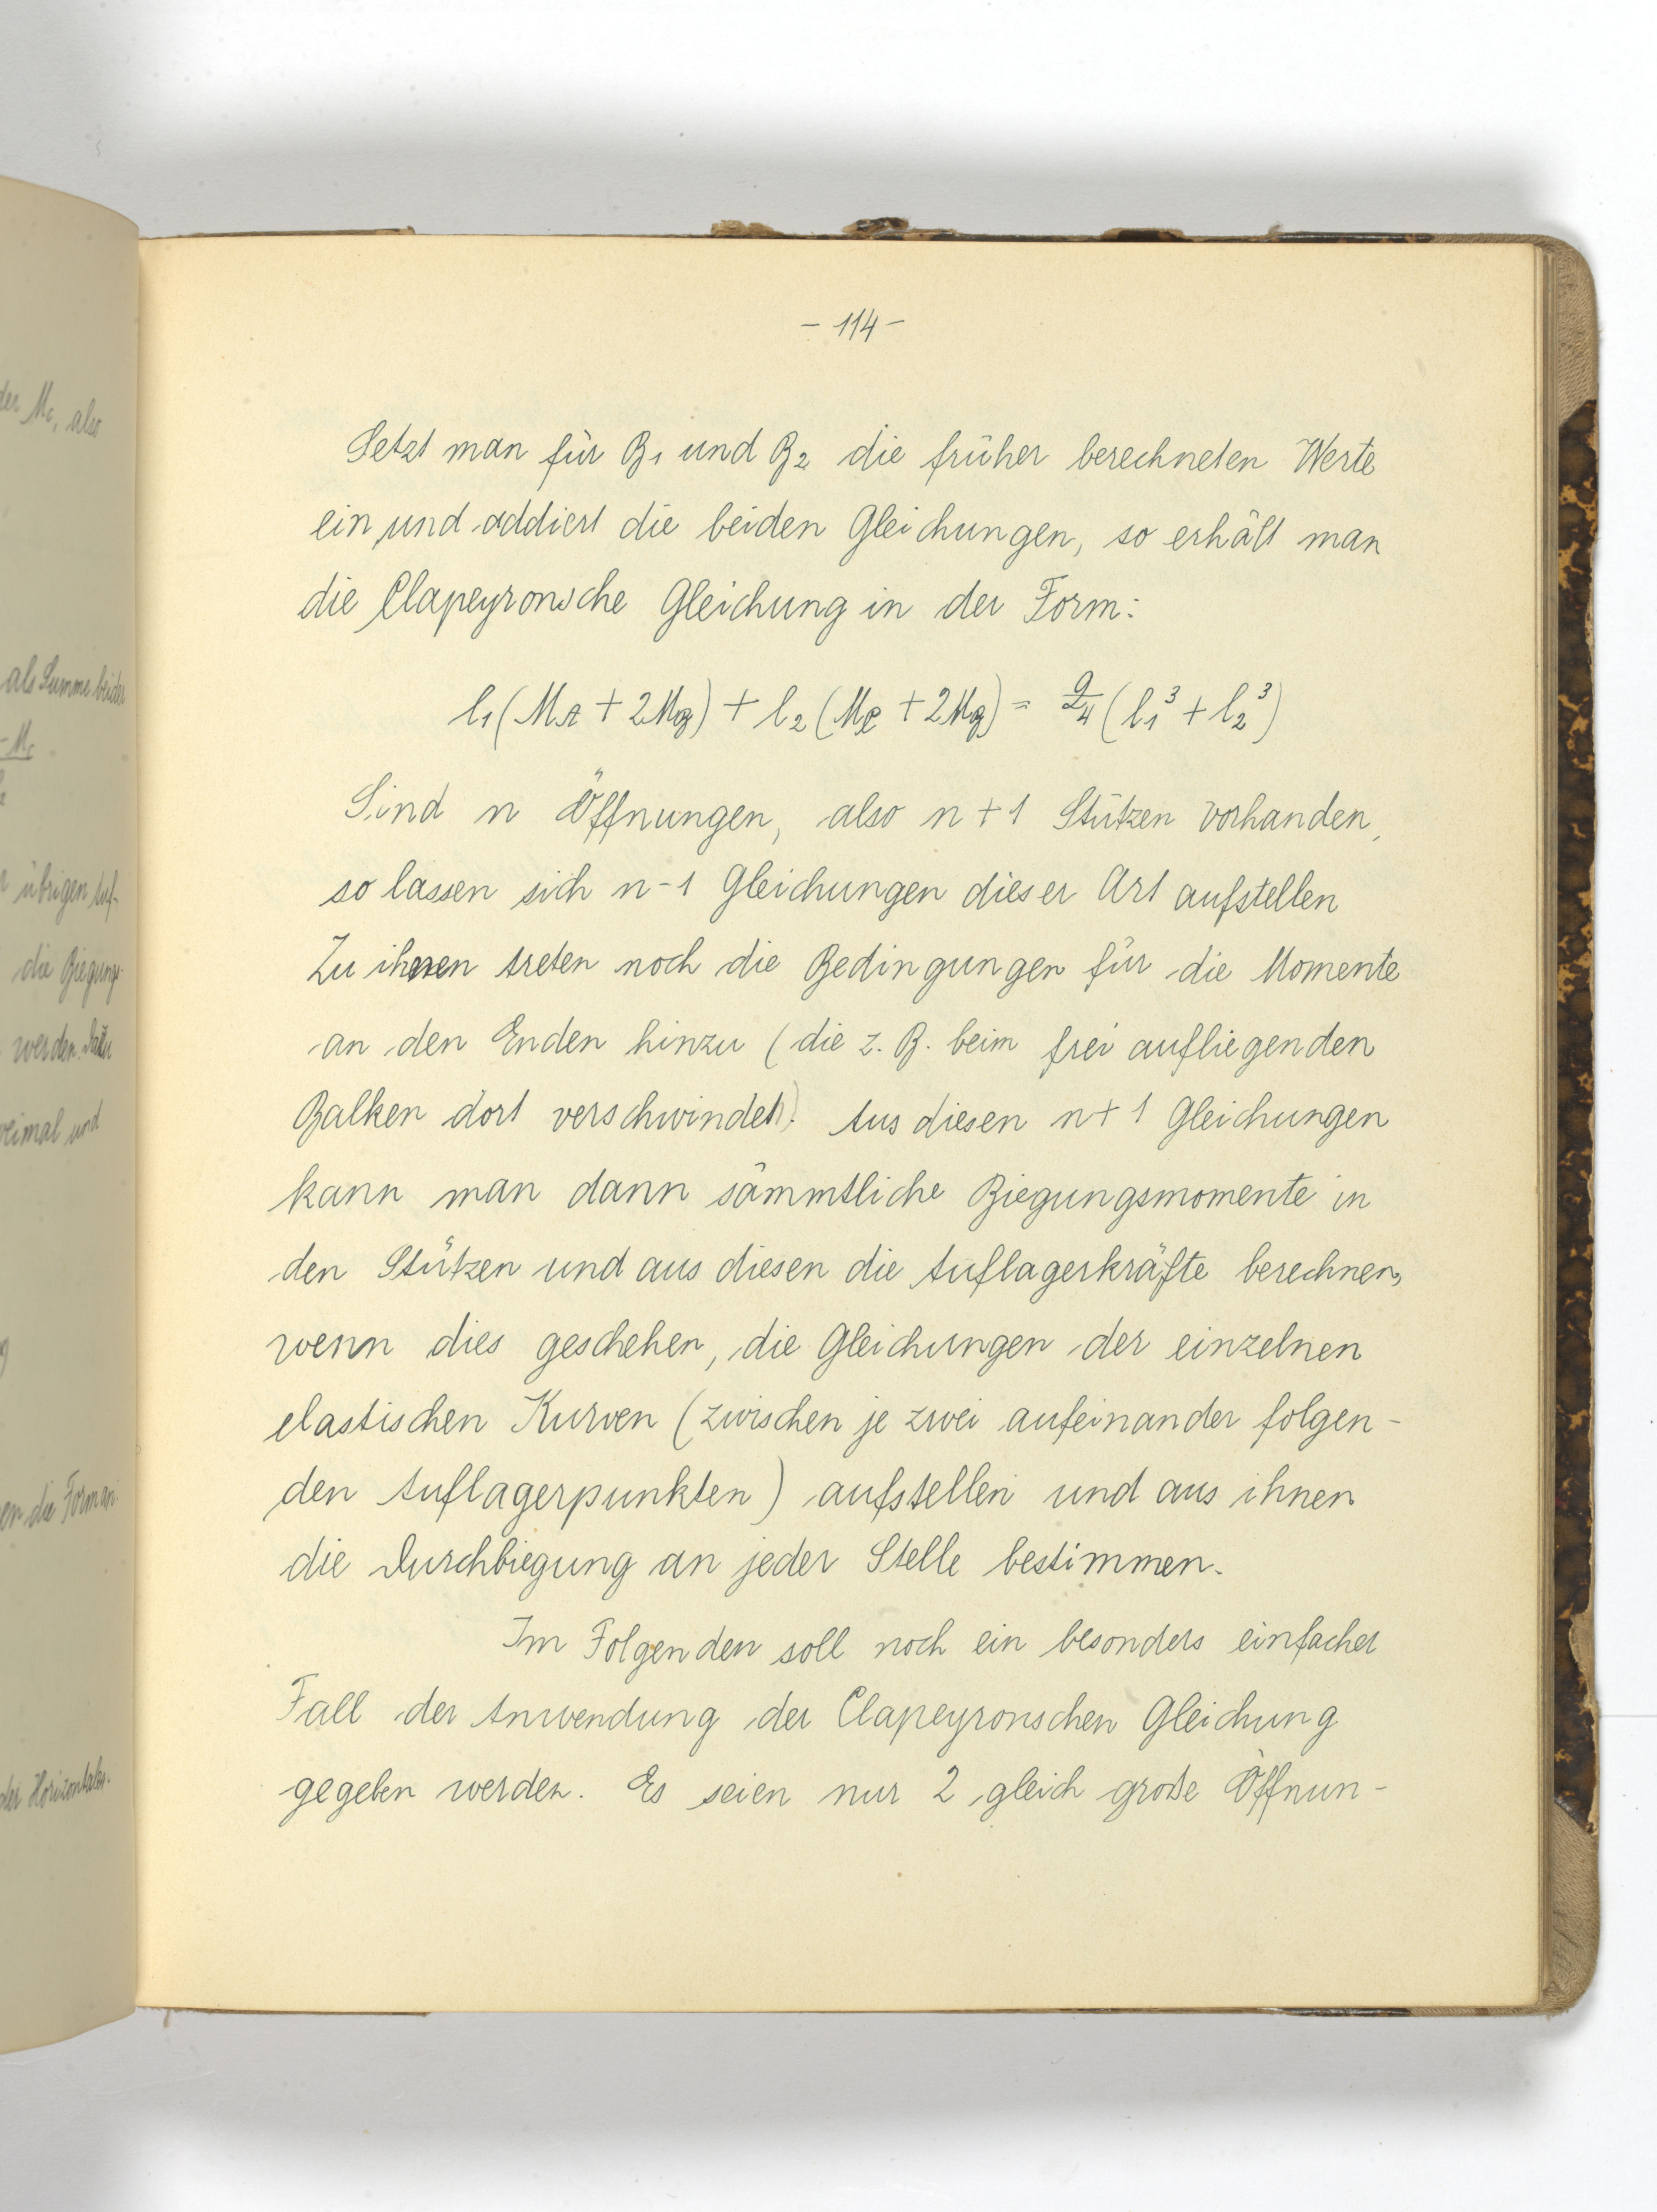 - 114 -
Setzt man für B₁ und B₂ die früher berechneten Werte
ein und addiert die beiden Gleichungen, so erhält man
die Clapeyronsche Gleichung in der Form:
l₁(M_A + 2M_B) + l₂(M_C + 2M_B) = q/4 (l₁³ + l₂³)
Sind n Öffnungen, also n + 1 Stützen vorhanden,
so lassen sich n-1 Gleichungen dieser Art aufstellen
Zu ihnen treten noch die Bedingungen für die Momente
an den Enden hinzu (die z. B. beim frei aufliegenden
Balken dort verschwinden). Aus diesen n + 1 Gleichungen
kann man dann sämmtliche Biegungsmomente in
den Stützen und aus diesen die Auflagerkräfte berechnen,
wenn dies geschehen, die Gleichungen der einzelnen
elastischen Kurven (zwischen je zwei aufeinander folgen-
den Auflagerpunkten) aufstellen und aus ihnen
die Durchbiegung an jeder Stelle bestimmen.
Im Folgenden soll noch ein besonders einfacher
Fall der Anwendung der Clapeyronschen Gleichung
gegeben werden. Es seien nur 2 gleich große Öffnun-
der M_C, also
als Summe beider
- M_C
übrigen Auf-
die Biegungs-
werden. Dazu
zweimal und
die Form an
der Horizontalen.